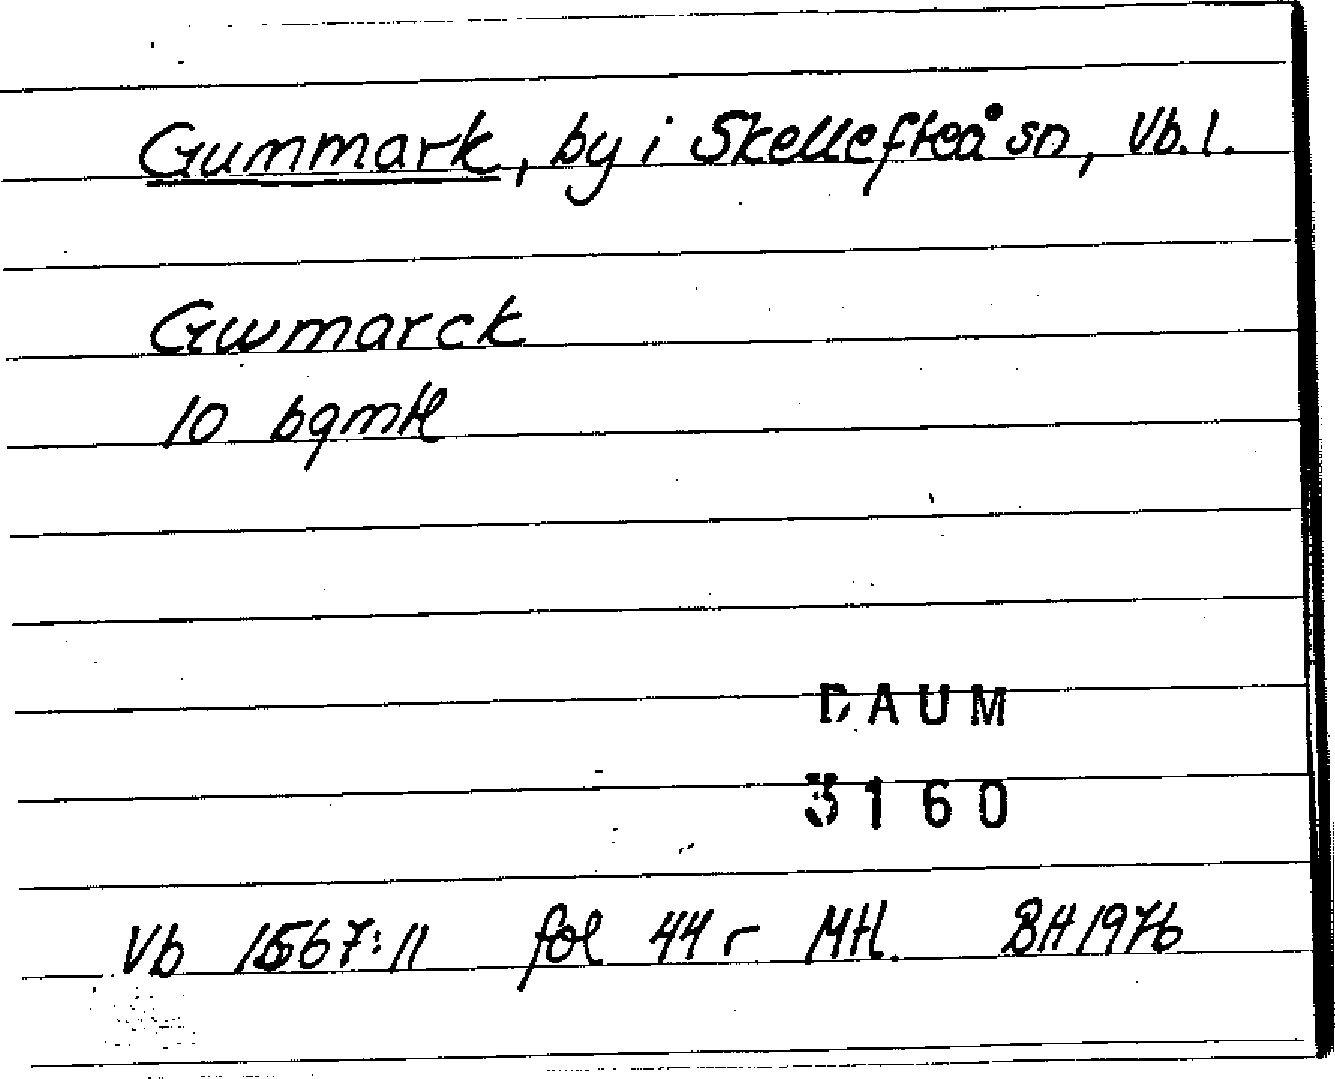 Gummark, by i Skellefteå sn, Vb. l.
Gwmarck
10 bgmtl
DAUM
3160
Vb 1567:11 fol 44 r Mtl. BH 1976